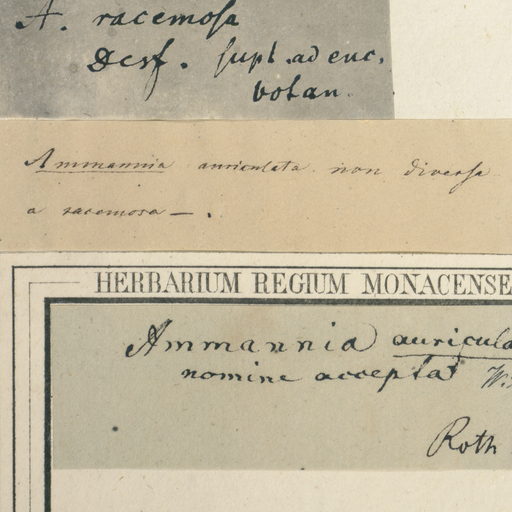 A. racemosa
Desf. supl. ad enc.
botan.
Ammannia auriculata non diversa
a racemosa — .
HERBARIUM REGIUM MONACENSE
Ammannia auricula
nomine accepta W.
Roth